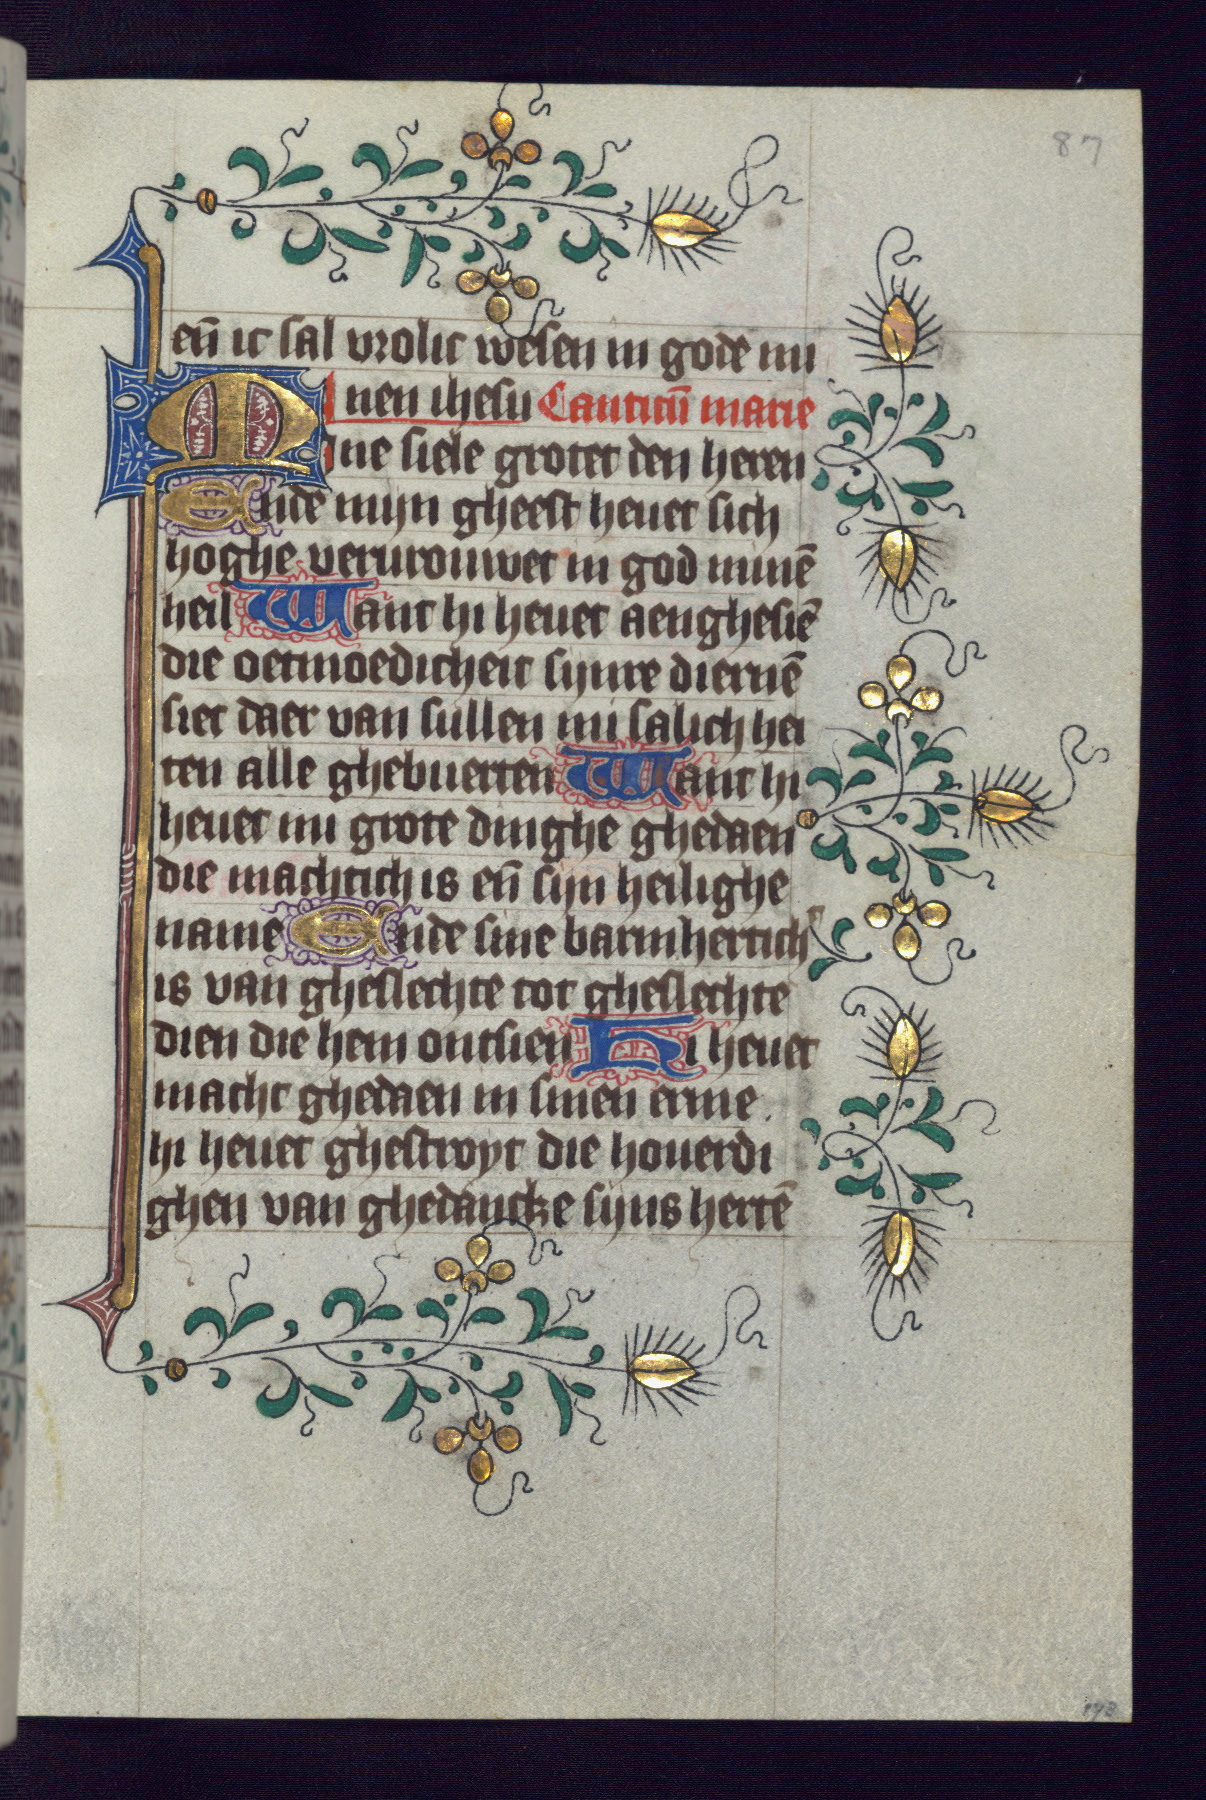 87
en̄ ic sal vrolic wesen in gode mi
nen ihesu Canticū marie
Mine siele grotet den heren
Ende mijn gheest heuet sich
hoghe vervrouwet in god minē
heil Want hi heuet aenghesiē
die oetmoedicheit sijnre diernē
siet daer van sullen mi salich hei
ten alle ghebuerten Want hi
heuet mi grote dinghe ghedaen
die machtich is en̄ sijn heilighe
name Ende sine barmhertich
is van gheslechte tot gheslechte
dien die hem ontsien Hi heuet
macht ghedaen in sinen arme .
hi heuet ghestroyt die houerdi
ghen van ghedancke sijns hertē